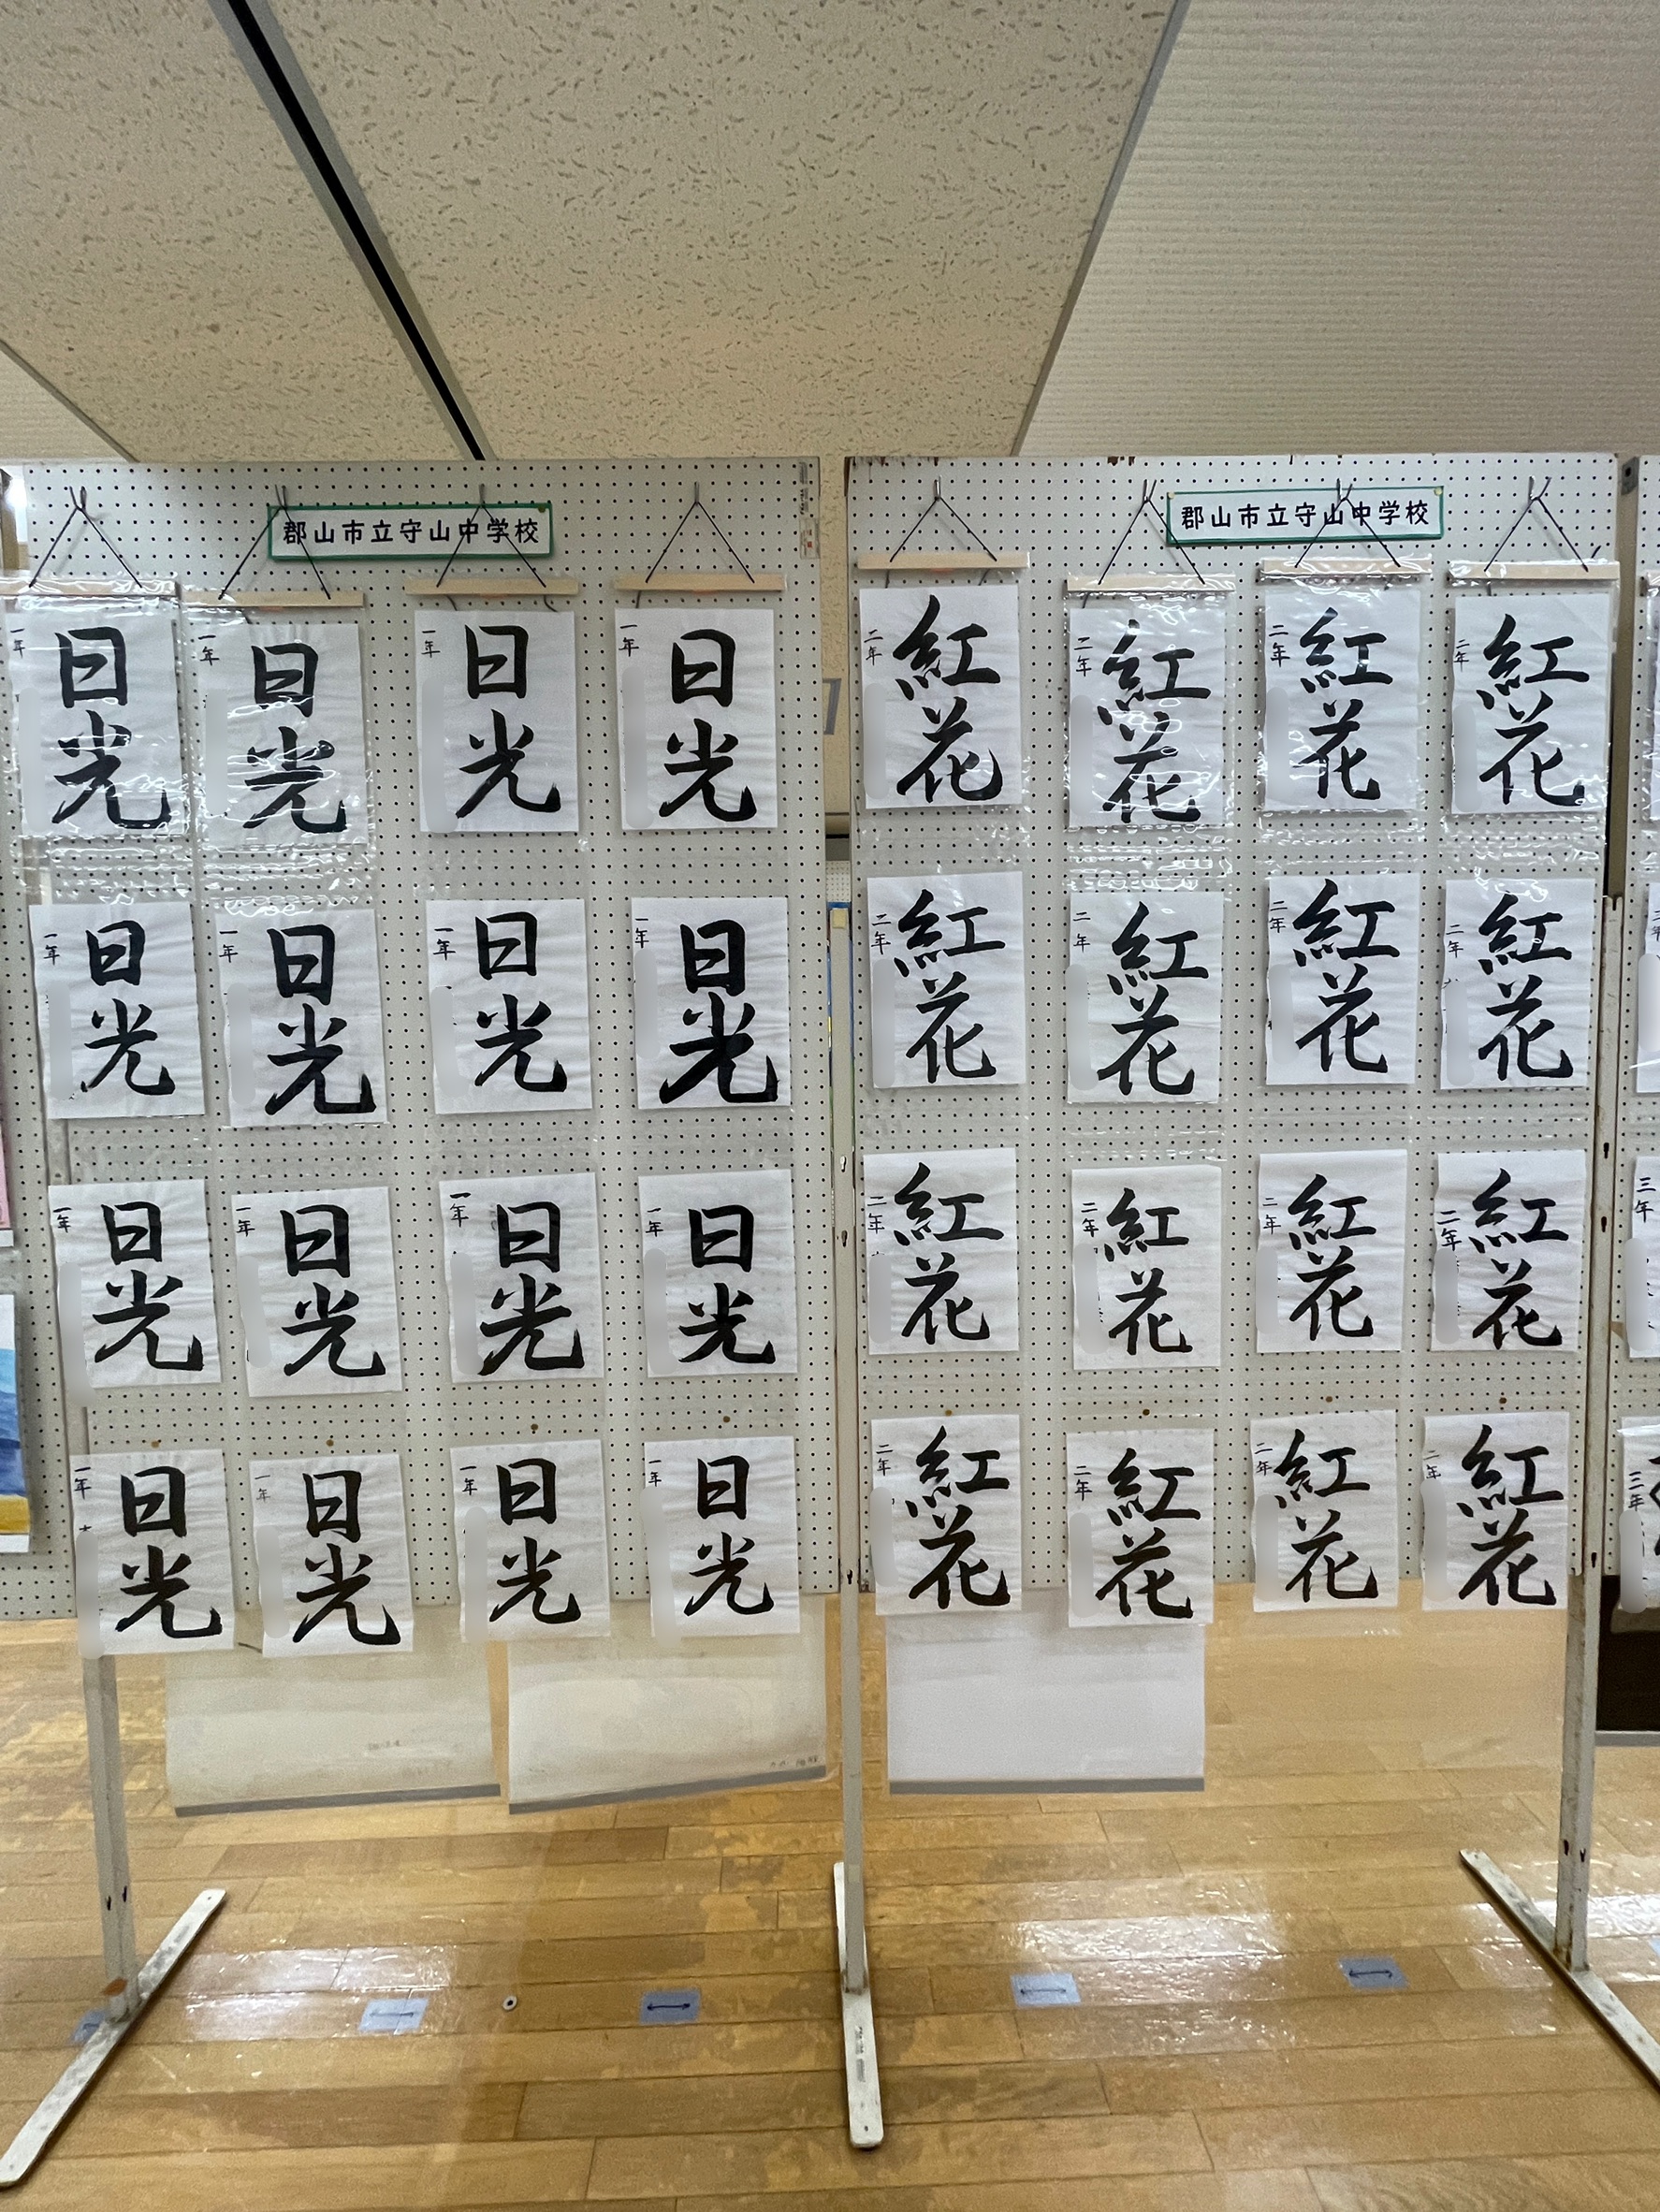 郡山市立守山中学校
日光
一年
日光
一年
日光
一年
日光
一年
日光
一年
日光
一年
日光
一年
日光
一年
日光
一年
日光
一年
日光
一年
日光
一年
日光
一年
日光
一年
日光
一年
日光
一年
郡山市立守山中学校
紅花
二年
紅花
二年
紅花
二年
紅花
二年
紅花
二年
紅花
二年
紅花
二年
紅花
二年
紅花
二年
紅花
二年
紅花
二年
紅花
二年
紅花
二年
紅花
二年
紅花
二年
紅花
二年
三年
三年